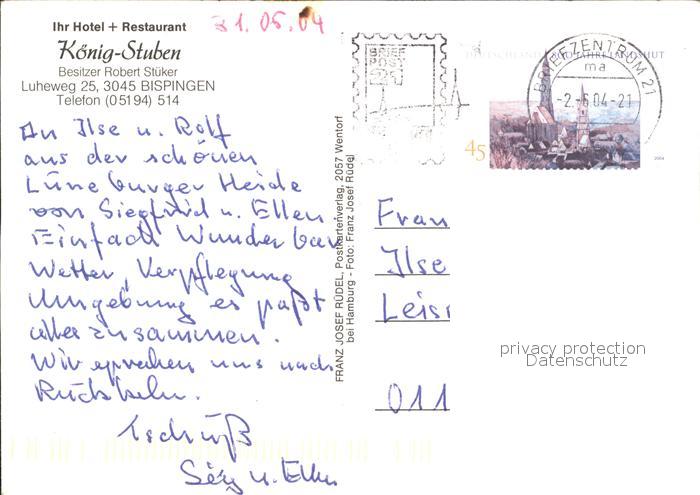 31.05.04
Ihr Hotel + Restaurant
König-Stuben
Besitzer Robert Stüker
Luheweg 25, 3045 BISPINGEN
Telefon (05194) 514
An Ilse u. Rolf
aus der schönen
Lüneburger Heide
von Siegfried u. Ellen.
Einfach Wunderbar
Wetter, Verpflegung
Umgebung es paßt
alles zusammen.
Wir sprechen uns nach
Rückkehr.
Tschüß
u. Ellen
FRANZ JOSEF RÜDEL, Postkartenverlag, 2057 Wentorf
bei Hamburg - Foto: Franz Josef Rüdel
BRIEF
POST
DEUTSCHLAND 800 JAHRE LANDSHUT
45
2004
BRIEFZENTRUM 21
ma
-2.-6.04-21
Frau
Ilse
Leisi
011
privacy protection
Datenschutz